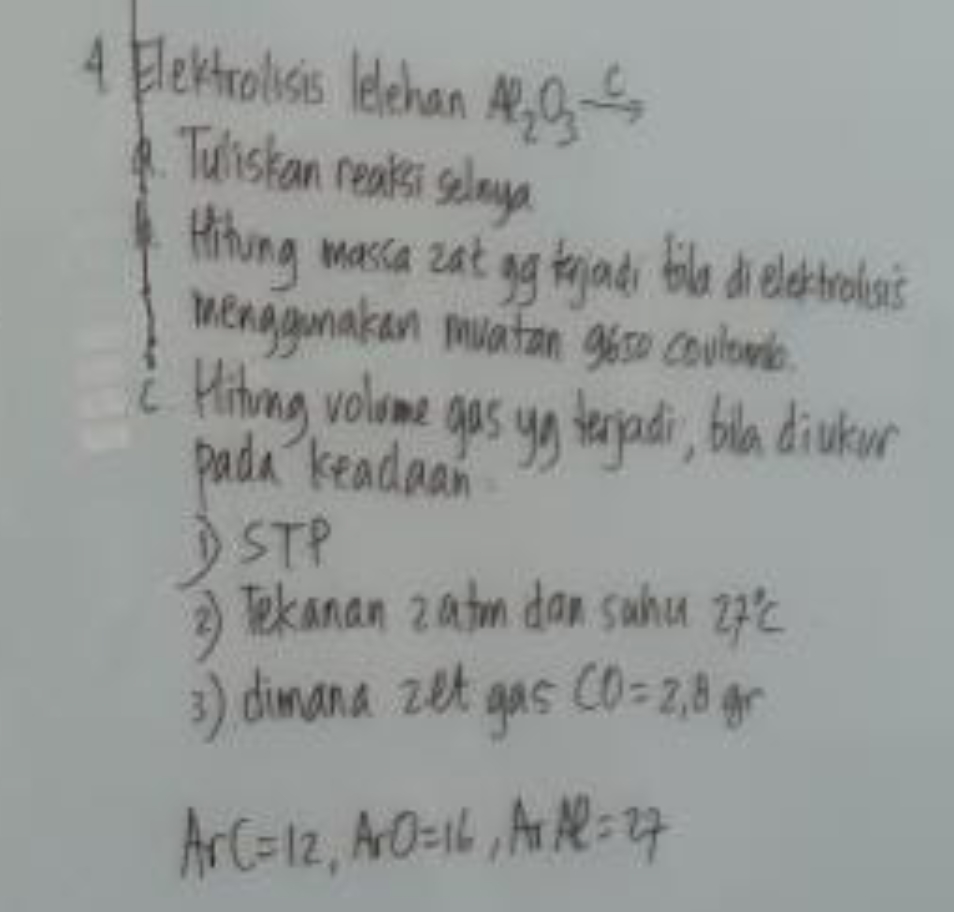 4 Elektrolisis lelehan Al₂O₃ C→
a. Tuliskan reaksi selnya
b. Hitung massa zat yg terjadi bila di elektrolisis
menggunakan muatan 9650 coulomb.
c Hitung volume gas yg terjadi, bila diukur
pada keadaan
1) STP
2) Tekanan 2 atm dan suhu 27°C
3) dimana 2 lt gas CO = 2,8 gr
Ar C = 12, Ar O = 16, Ar Al = 27